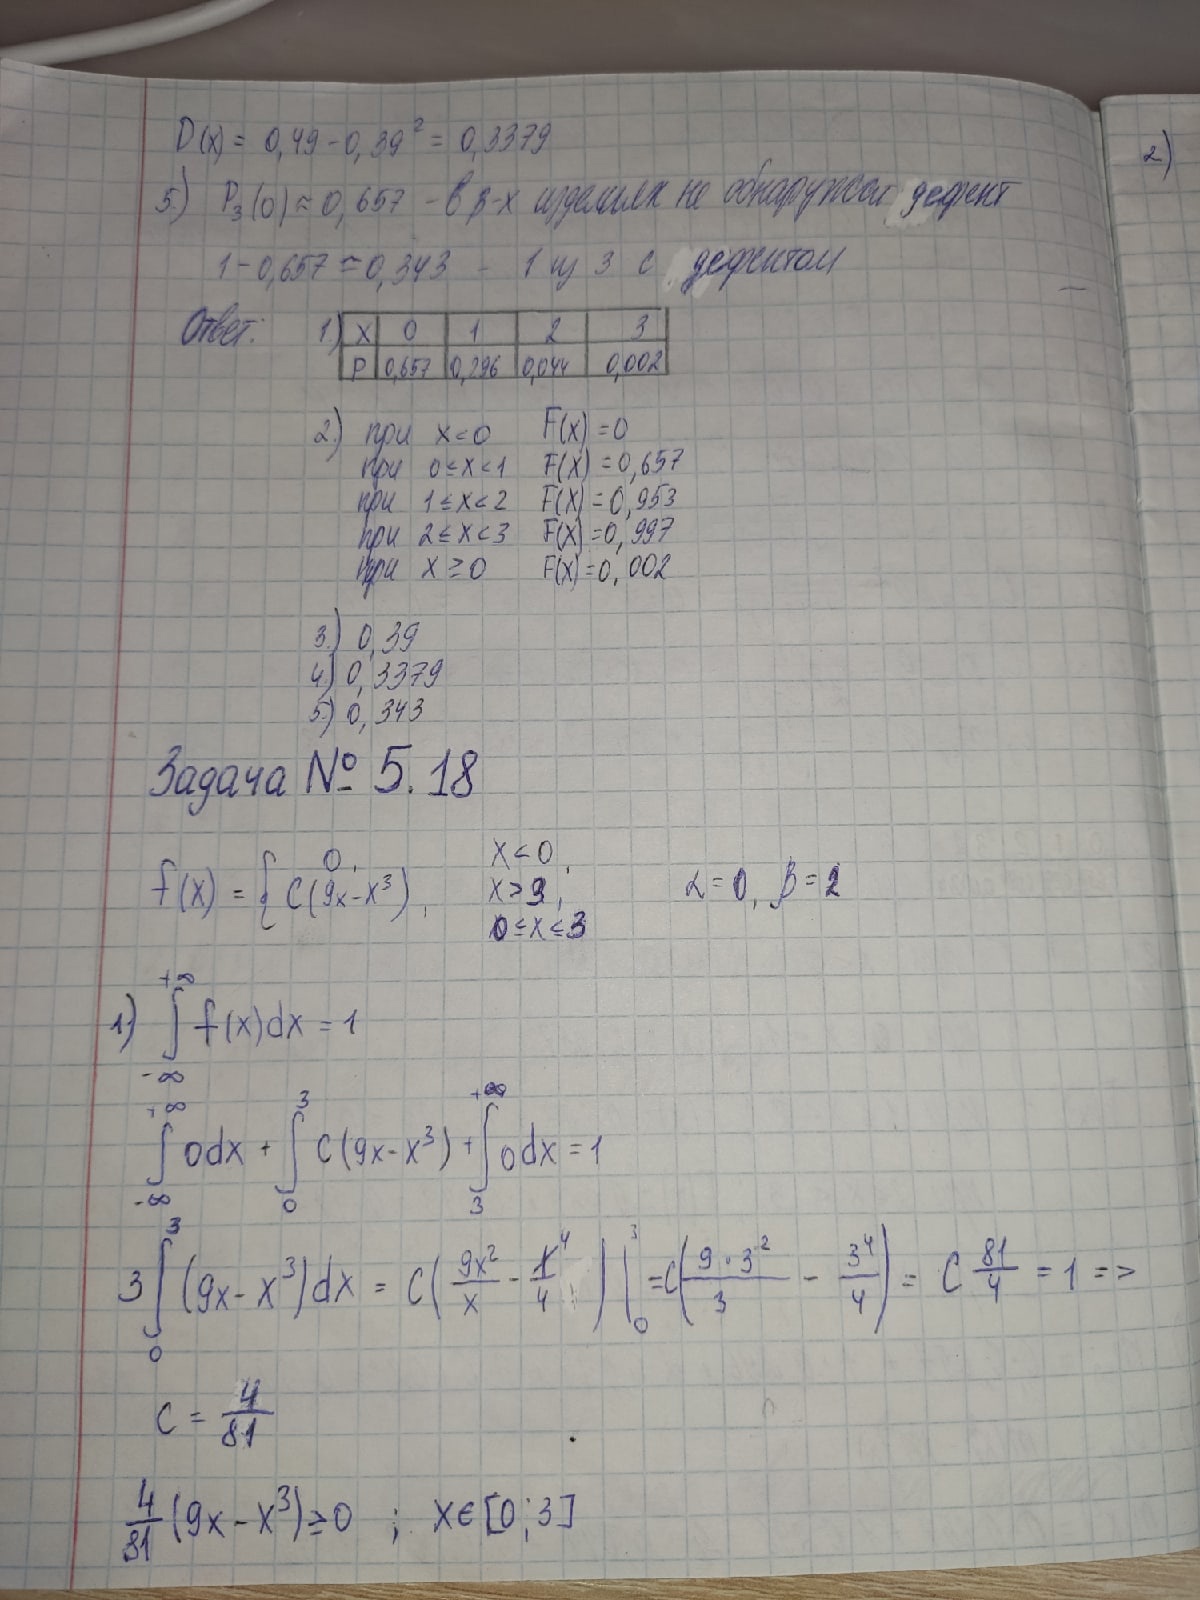 D(x) = 0,49 - 0,39² = 0,3379
2)
5.) P₃(0) ≈ 0,657 - в 3-х изделиях не обнаружен дефект
1 - 0,657 ≈ 0,343 - 1 из 3 с дефектом
Ответ: 1.) X 0 1 2 3
P 0,657 0,296 0,044 0,002
2.) при x < 0 F(x) = 0
при 0 ≤ x < 1 F(x) = 0,657
при 1 ≤ x < 2 F(x) = 0,953
при 2 ≤ x < 3 F(x) = 0,997
при x ≥ 0 F(x) = 0,002
3.) 0,39
4.) 0,3379
5.) 0,343
Задача № 5.18
f(x) = { 0, x < 0,
C(9x - x³), x > 3, α = 0, β = 2
0 ≤ x ≤ 3
1) ∫_{-∞}^{+∞} f(x)dx = 1
∫_{-∞}^{+∞} 0dx + ∫_0^3 C(9x - x³) + ∫_3^{+∞} 0dx = 1
3∫_0^3 (9x - x³)dx = C(9x²/x - x⁴/4)|_0^3 = C(9·3²/3 - 3⁴/4) = C 81/4 = 1 =>
C = 4/81
4/81 (9x - x³) ≥ 0 ; x ∈ [0; 3]